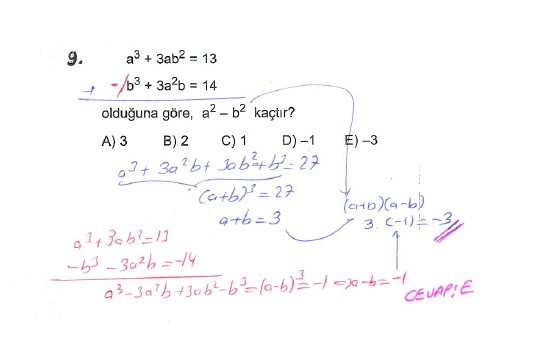 9. a³ + 3ab² = 13
+ -/b³ + 3a²b = 14
olduğuna göre, a² – b² kaçtır?
A) 3 B) 2 C) 1 D) –1 E) –3
a³ + 3a²b + 3ab² + b³ = 27
(a+b)³ = 27
a+b = 3
(a+b)(a-b)
3. (-1) = -3
a³ + 3ab² = 13
-b³ - 3a²b = -14
a³ - 3a²b + 3ab² - b³ = (a-b)³ = -1 => a-b = -1
CEVAP: E